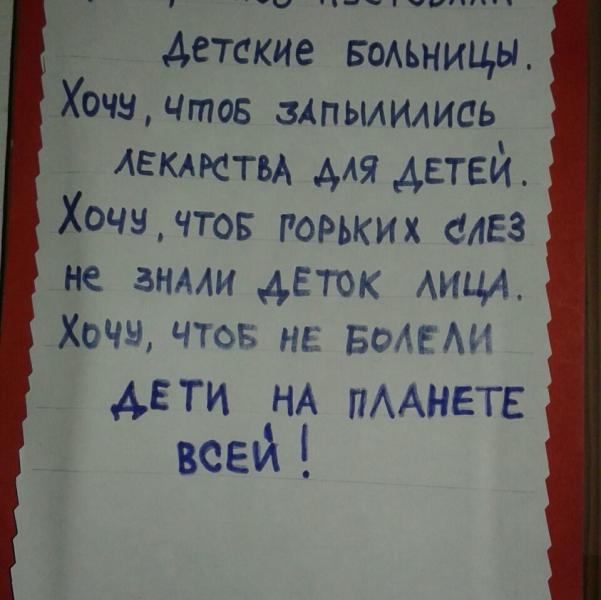 детские больницы.
Хочу, чтоб запылились
лекарства для детей.
Хочу, чтоб горьких слез
не знали деток лица.
Хочу, чтоб не болели
дети на планете
всей!